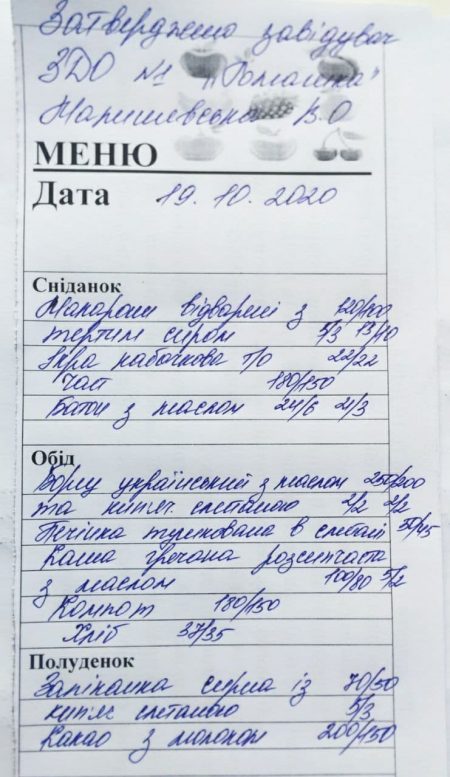 Затверджено завідувач
ЗДО №1 "Ромашка"
В.О
МЕНЮ
Дата 19.10.2020
Сніданок
Макарони відварені з 120/100
тертим сиром 5/3 13/10
Ікра кабачкова т/о 22/22
Чай 180/150
Батон з маслом 24/6 21/3
Обід
Борщ український з маслом 250/200
та кип'яч. сметаною 2/2 2/2
Печінка тушкована в сметані 50/45
Каша гречана розсипчаста
з маслом 100/80 5/2
Компот 180/150
Хліб 37/35
Полуденок
Запіканка сирна із 70/50
кип'яч сметаною 5/3
Какао з молоком 200/150